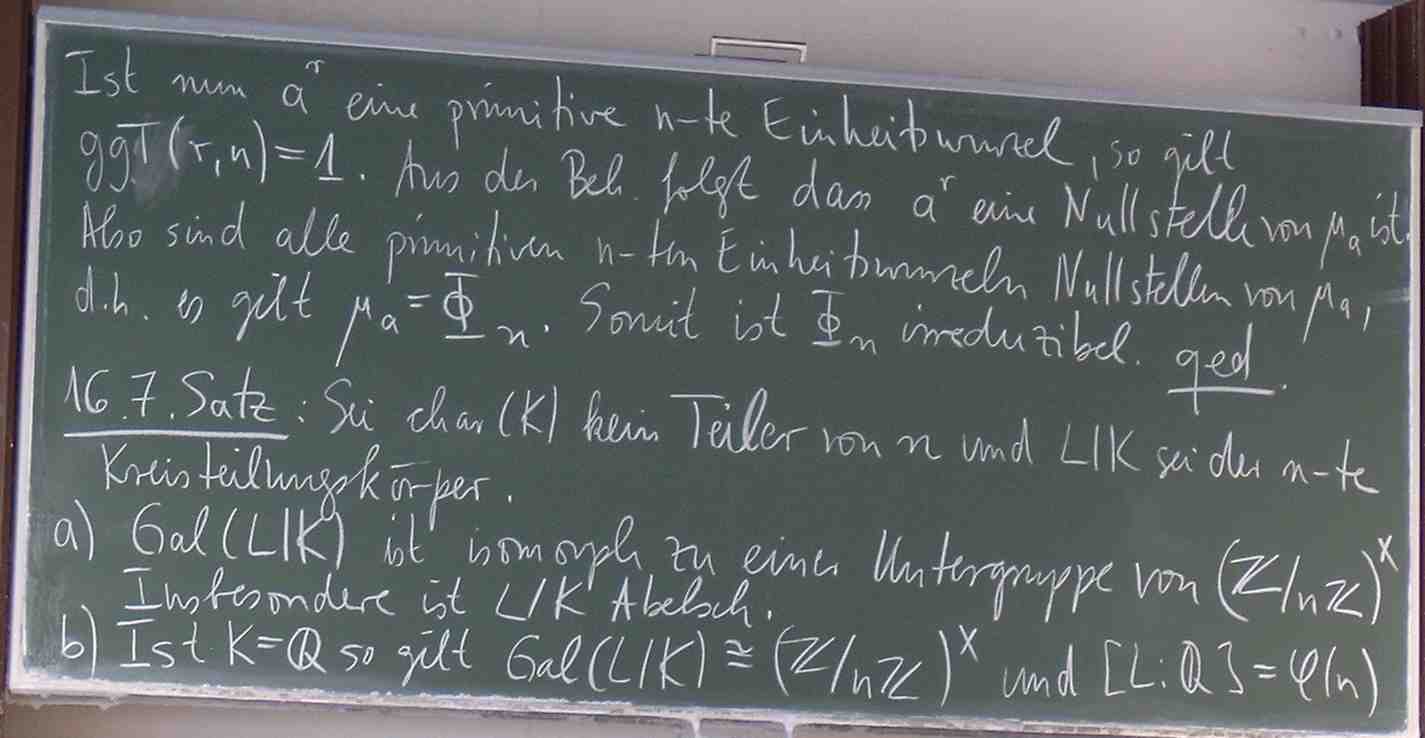 Ist nun aʳ eine primitive n-te Einheitswurzel, so gilt
ggT(r,n)=1. Aus der Beh. folgt dass aʳ eine Nullstelle von μₐ ist.
Also sind alle primitiven n-ten Einheitswurzeln Nullstellen von μₐ,
d.h. es gilt μₐ=Φₙ. Somit ist Φₙ irreduzibel. qed.
16.7. Satz: Sei char(K) kein Teiler von n und L|K sei der n-te
Kreisteilungskörper.
a) Gal(L|K) ist isomorph zu einer Untergruppe von (ℤ/nℤ)ˣ
Insbesondere ist L/K Abelsch.
b) Ist K=ℚ so gilt Gal(L|K) ≅ (ℤ/nℤ)ˣ und [L:ℚ]=φ(n)